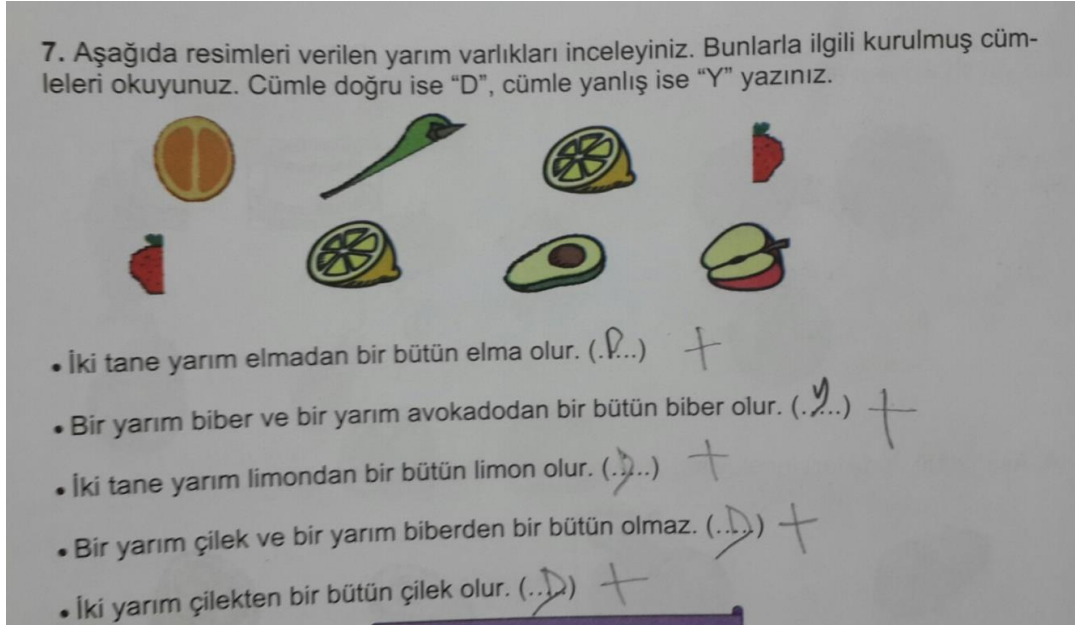 7. Aşağıda resimleri verilen yarım varlıkları inceleyiniz. Bunlarla ilgili kurulmuş cüm-
leleri okuyunuz. Cümle doğru ise “D”, cümle yanlış ise “Y” yazınız.
• İki tane yarım elmadan bir bütün elma olur. (.D..) +
• Bir yarım biber ve bir yarım avokadodan bir bütün biber olur. (.Y..) +
• İki tane yarım limondan bir bütün limon olur. (.D..) +
• Bir yarım çilek ve bir yarım biberden bir bütün olmaz. (..D.) +
• İki yarım çilekten bir bütün çilek olur. (..D) +